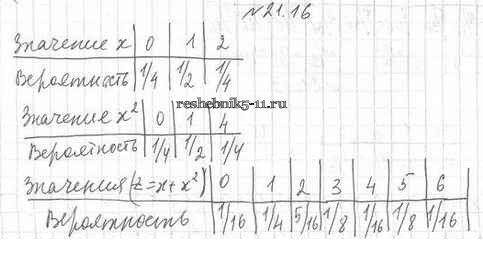 №21.16
Значение x | 0 | 1 | 2
Вероятность | 1/4 | 1/2 | 1/4
reshebnik5-11.ru
Значение x² | 0 | 1 | 4
Вероятность | 1/4 | 1/2 | 1/4
Значения (z=x+x²) | 0 | 1 | 2 | 3 | 4 | 5 | 6
Вероятность | 1/16 | 1/4 | 5/16 | 1/8 | 1/16 | 1/8 | 1/16